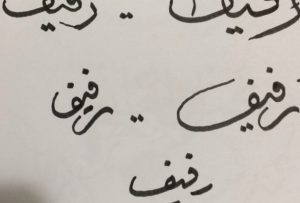 رفيف -- رفيف
رفيف -- رفيف
رفيف